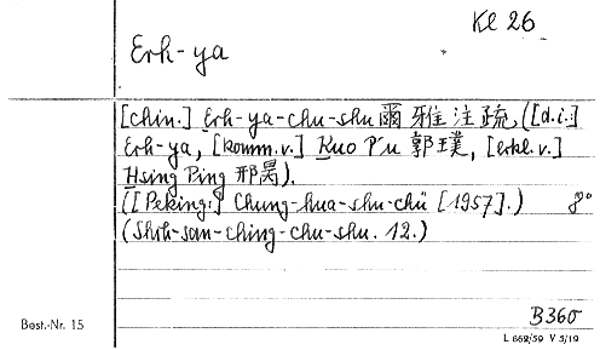 Kl 26
Erh-ya
[chin.] Erh-ya-chu-shu 爾雅注疏, ([d.i.]
Erh-ya, [komm.v.] Kuo P'u 郭璞, [erkl.v.]
Hsing Ping 邢昺).
([Peking:] Chung-hua-shu-chü [1957].) 8°
(Shih-san-ching-chu-shu. 12.)
B360
Best.-Nr. 15
L 662/59 V 5/19